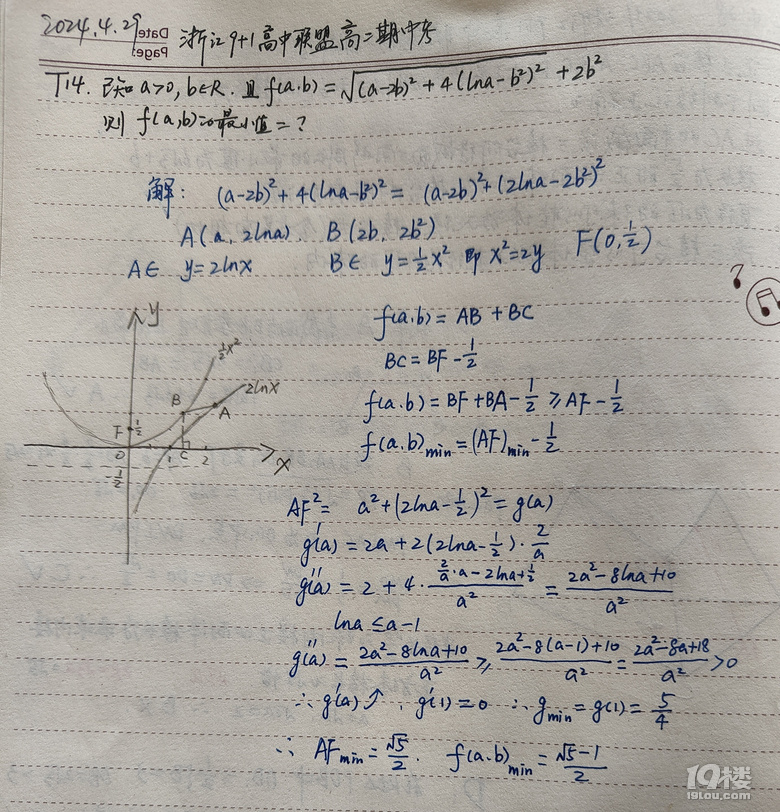 2024.4.29
Date
Page:
浙江9+1高中联盟高二期中考
T14. 已知 a>0, b∈R. 且 f(a,b) = √((a-2b)² + 4(lna-b²)²) + 2b²
则 f(a,b) 最小值 = ?
解: (a-2b)² + 4(lna-b²)² = (a-2b)² + (2lna-2b²)²
A(a, 2lna) B(2b, 2b²)
A∈ y=2lnx B∈ y=½x² 即 x²=2y F(0,½)
f(a,b) = AB + BC
BC = BF - ½
f(a,b) = BF + BA - ½ ≥ AF - ½
f(a,b)min = (AF)min - ½
y
½x²
2lnx
B
A
F
½
0
1
C
2
x
-½
AF² = a² + (2lna - ½)² = g(a)
g'(a) = 2a + 2(2lna - ½)·2/a
g''(a) = 2 + 4·(2/a·a - 2lna + ½)/a² = (2a² - 8lna + 10)/a²
lna ≤ a-1
g''(a) = (2a² - 8lna + 10)/a² ≥ (2a² - 8(a-1) + 10)/a² = (2a² - 8a + 18)/a² > 0
∴ g'(a)↗, g'(1) = 0 ∴ gmin = g(1) = 5/4
∴ AFmin = √5/2. f(a,b)min = (√5-1)/2
19楼
19lou.com